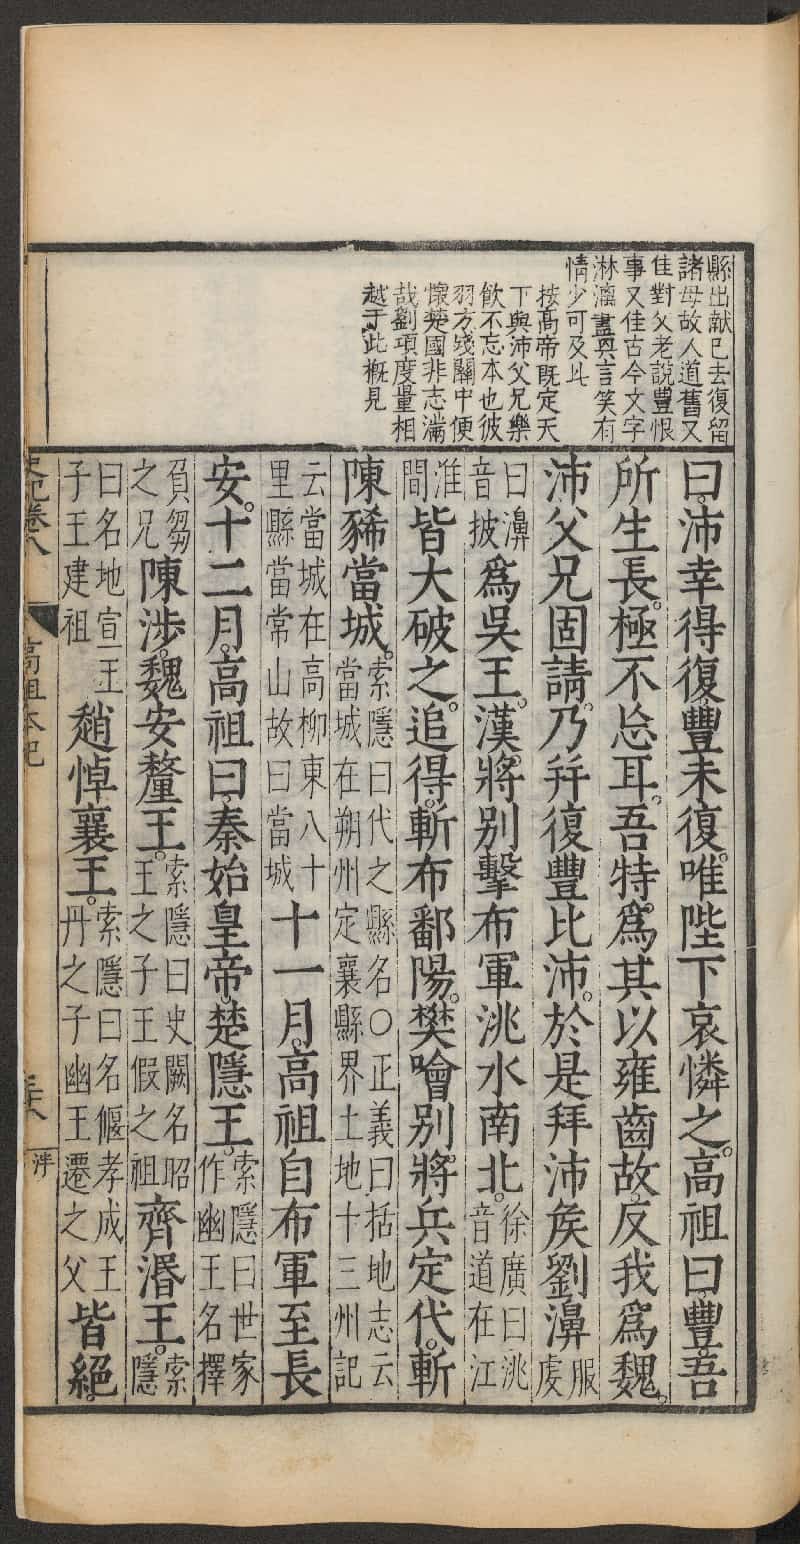 縣出献已去復留
諸母故人道舊又
佳對父老說豊恨
事又佳古今文字
淋漓盡興言笑有
情少可及此
按高帝既定天
下與沛父兄樂
飲不忘本也彼
羽方殘關中便
懷楚國非志滿
哉劉項度量相
越于此概見
曰沛幸得復豐未復唯陛下哀憐之高祖曰豐吾
所生長極不忘耳吾特爲其以雍齒故反我爲魏
沛父兄固請乃并復豐比沛於是拜沛矦劉濞服虔
曰濞音披爲吳王漢將别擊布軍洮水南北徐廣曰洮音道在江
淮間皆大破之追得斬布鄱陽樊噲别將兵定代斬
陳豨當城索隱曰代之縣名〇正義曰括地志云當城在朔州定襄縣界土地十三州記
云當城在高柳東八十里縣當常山故曰當城十一月高祖自布軍至長
安十二月高祖曰秦始皇帝楚隱王索隱曰世家作幽王名擇
負芻之兄陳涉魏安釐王索隱曰史闕名昭王之子王假之祖齊湣王索隱
曰名地宣王子王建祖趙悼襄王索隱曰名偃孝成王丹之子幽王遷之父皆絕
史記卷八
高祖本紀
三十八
泮